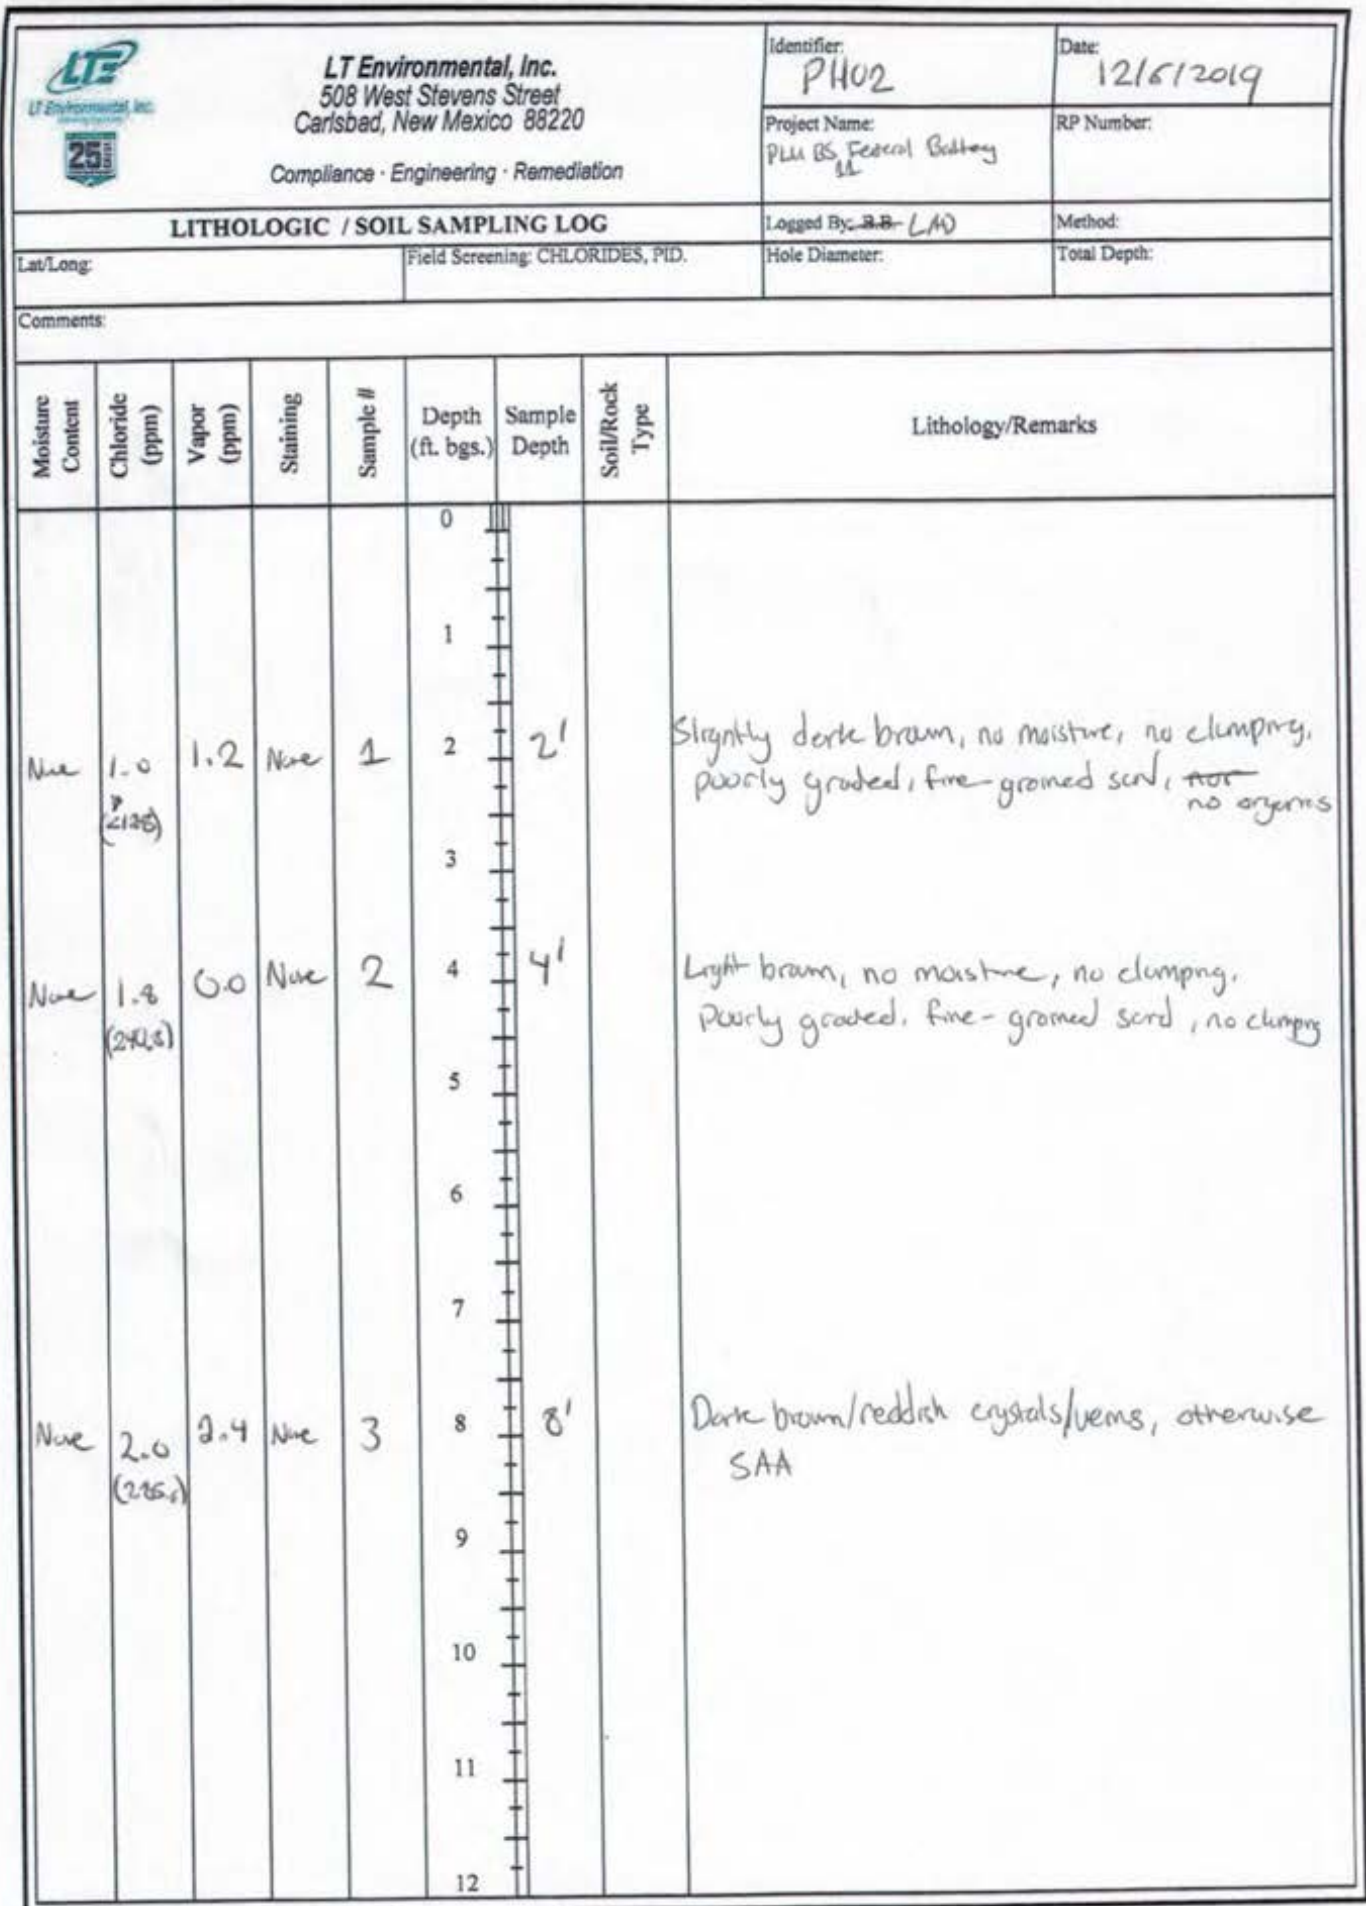 LTE
LT Environmental, Inc.
25
LT Environmental, Inc.
508 West Stevens Street
Carlsbad, New Mexico 88220
Compliance · Engineering · Remediation
Identifier:
PH02
Date:
12/5/2019
Project Name:
PLU BS Federal Battery
11
RP Number:
LITHOLOGIC / SOIL SAMPLING LOG
Logged By: B.B.
Method:
Lat/Long:
Field Screening: CHLORIDES, PID.
Hole Diameter:
Total Depth:
Comments:
Moisture Content
Chloride (ppm)
Vapor (ppm)
Staining
Sample #
Depth (ft. bgs.)
Sample Depth
Soil/Rock Type
Lithology/Remarks
0
1
None 1.0 1.2 None 1 2 2' Slightly dark brown, no moisture, no clumping,
poorly graded, fine-grained sand,
no organics
3
None 1.8 0.0 None 2 4 4' Light brown, no moisture, no clumping.
Poorly graded, fine-grained sand, no clumping
5
6
7
None 2.0 2.4 None 3 8 8' Dark brown/reddish crystals/veins, otherwise
SAA
9
10
11
12